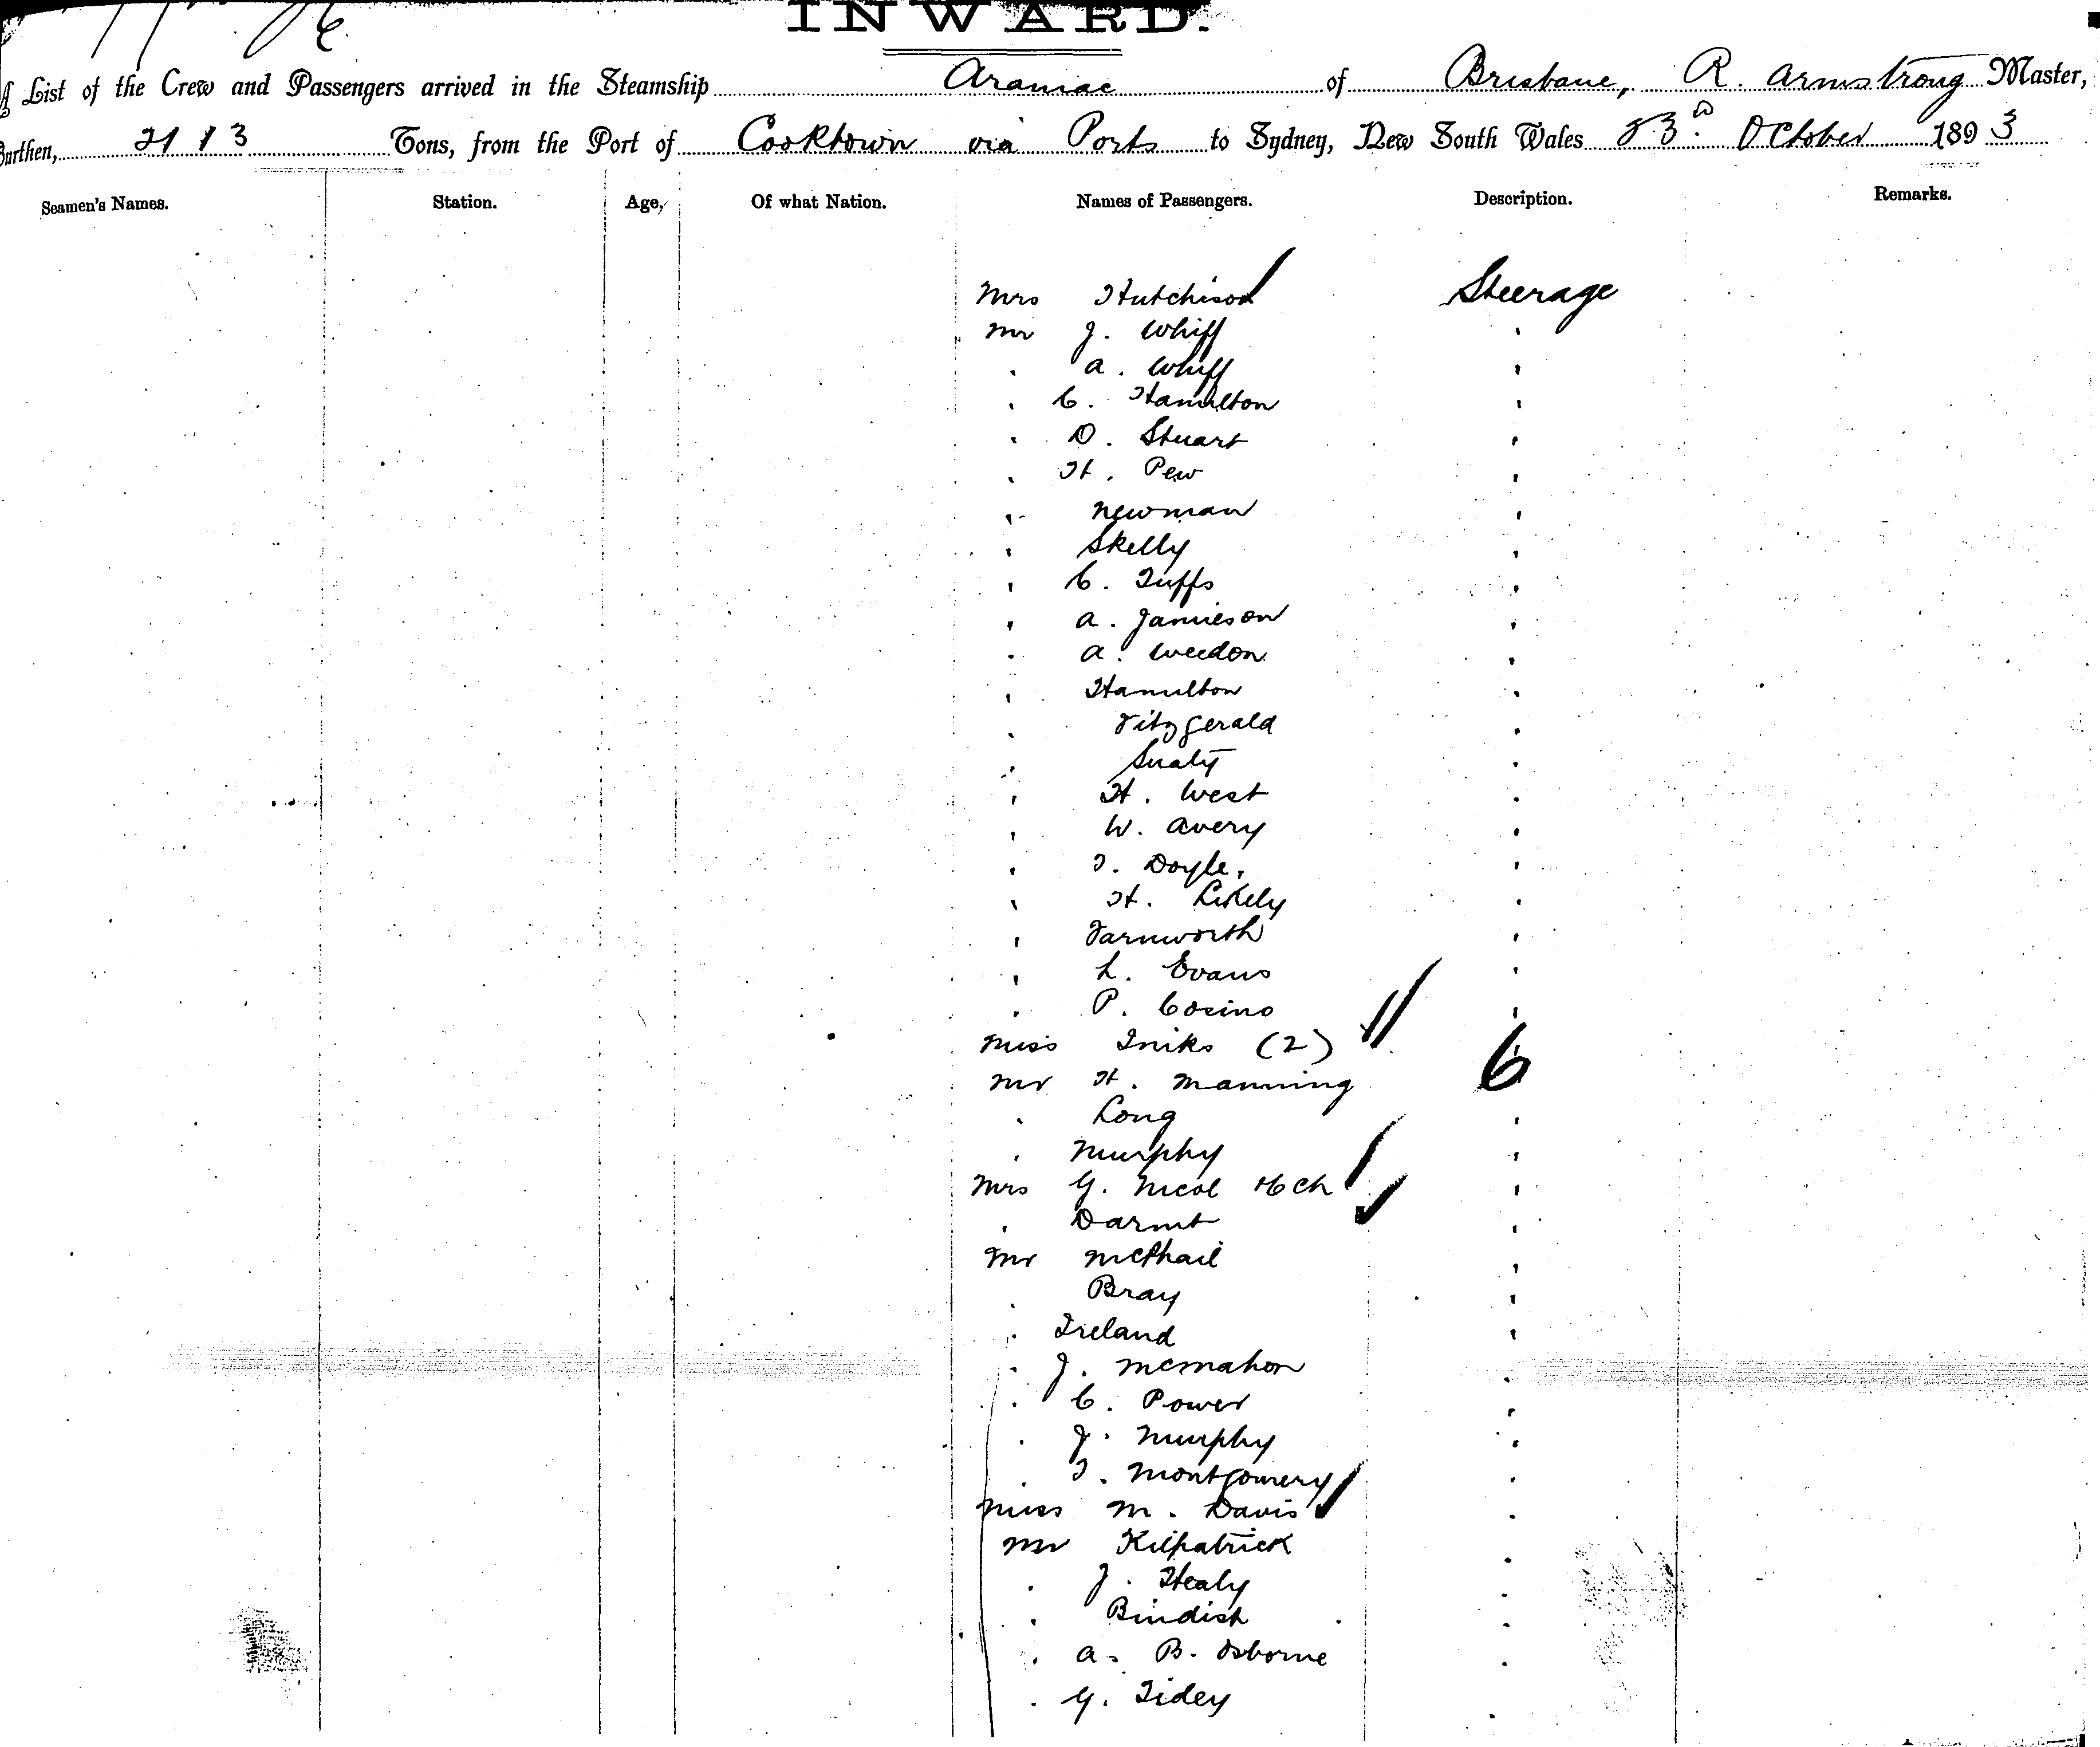 INWARD.
List of the Crew and Passengers arrived in the Steamship Aramac of Brisbane, R. Armstrong Master,
Burthen, 2113 Tons, from the Port of Cooktown via Ports to Sydney, New South Wales 23rd October 1893
Seamen's Names. Station. Age, Of what Nation. Names of Passengers. Description. Remarks.
Mrs Hutchison Steerage
Mr J. Whiff
A. Whiff
C. Hamilton
D. Stuart
H. Pew
Newman
Skelly
C. Tuffs
A. Jamieson
A. Weedon
Hamilton
Fitzgerald
H. West
W. Avery
T. Doyle,
H. Likely
Farnworth
L. Evans
P. Cosino
Miss (2)
Mr H. Manning 6
Long
Murphy
Mrs G. Nicol
Mr McPhail
Bray
Ireland
J. McMahon
C. Power
J. Murphy
T. Montgomery
Miss M. Davis
Mr Kilpatrick
J. Healy
A. B. Osborne
G. Tidey